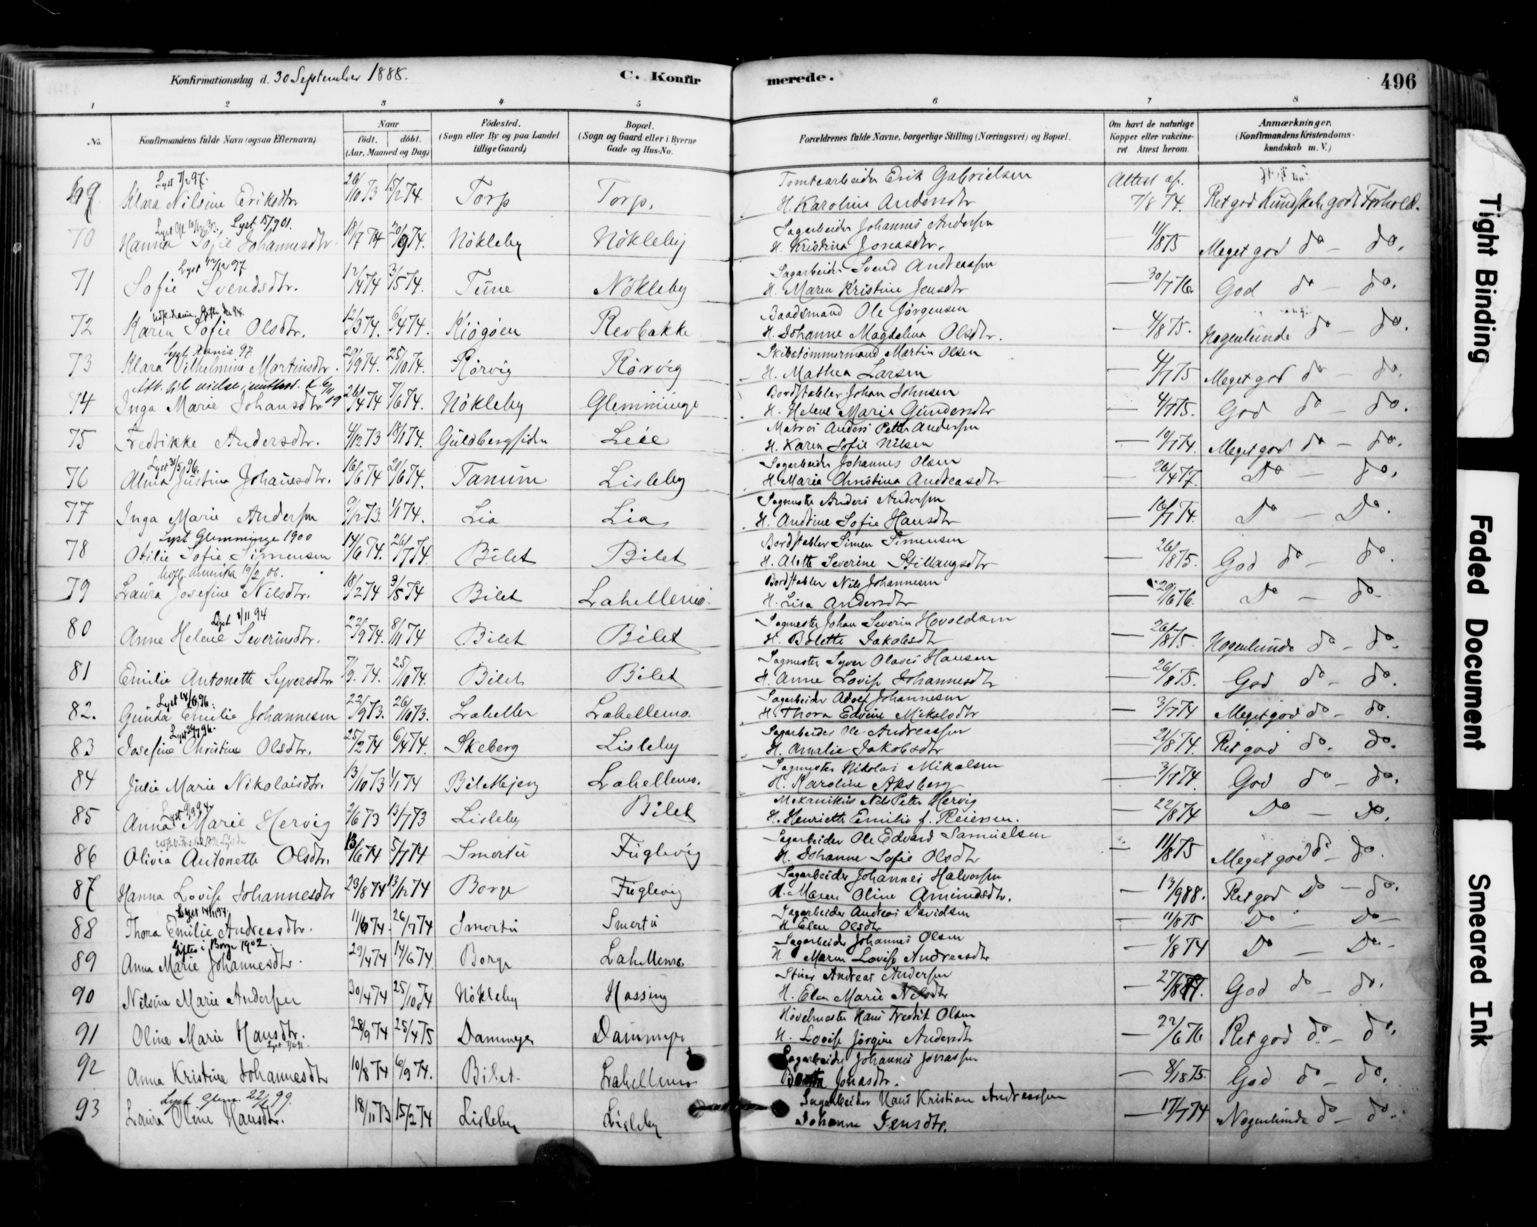 Konfirmationsdag d. 30 September 1888.
C. Konfir
merede.
496
1 2 3 4 5 6 7 8
No.
Konfirmandens fulde Navn (ogsaa Efternavn)
Naar
født. døbt.
(Aar, Maaned og Dag)
Fødested.
(Sogn eller By og paa Landet tillige Gaard)
Bopæl.
(Sogn og Gaard eller i Byerne Gade og Hus-No.
Forældrenes fulde Navne, borgerlige Stilling (Næringsvei) og Bopæl.
Om havt de naturlige Kopper eller vaccineret Attest herom.
Anmærkninger.
(Konfirmandens Kristendomskundskab m. V.)
69 Klara Nilsine Eriksdtr Torp Torp. Tomtearbeider Erik Gabrielsen
H. Karoline Andersdtr Attest af 7/8 74. Ret god Kundskab godt Forhold.
70 Hanna Sofie Johannesdtr. Nökleby Nökleby Sagarbeider Johannes Andersen
H. Kristina Jonasdtr. 11/8 75 Meget god do - do.
71 Sofie Svendsdtr. 12/4 74 3/5 74 Tune Nökleby Sagarbeider Svend Andreassen
H. Maren Kristine Jensdtr 30/7 76. God do - do.
72 Karen Sofie Olsdtr. 6/4 74. Kiøgøen Revbakke Baadsmand Ole Jørgensen
H. Johanne Magdalena Olsdtr. 4/8 75. Nogenlunde do - do.
73 Klara Vilhelmine Martinsdtr. 25/10 74. Rørvig Rørvig Skibstømmermand Martin Olsen
H. Mathea Larsen 4/7 75 Meget god do - do.
74 Inga Marie Johansdtr 26/4 74 7/6 74. Nökleby Glemminge Bordstabler Johan Johnsen
H. Helene Marie Gundersdtr 4/7 75. God do - do.
75 Fredrikke Andersdtr. 4/2 73 18/1 74. Guldbergsiden Leie Matros Anders Petter Andersen
H. Karen Sofie Nilsen 19/1 74. Meget god do - do.
76 Alma Justina Johanesdtr. 16/6 74 21/6 74. Tanum Lisleby Sagarbeider Johannes Olsen
H. Maria Christina Andreasdtr 26/4 77. Do - do.
77 Inga Marie Andersen 1/1 74. Lia Lia Sagmester Anders Andersen
H. Andrine Sofie Hansdtr 10/7 74 Do - Do.
78 Lyst Glemminge 1900
Otilie Sofie Simensen 14/6 74 26/7 74 Bilet Bilet Bordstabler Simen Simensen
H. Alette Severine Stillaugsdtr 26/8 75. God do - do.
79 Laura Josefine Nilsdtr. 10/2 74 3/5 74 Bilet Lahellemo. Bordstabler Nils Johannesen
H. Lisa Andersdtr 20/6 76 Do - do
80 Lyst 4/11 94
Anne Helene Severinsdtr. 22/9 74. 8/11 74 Bilet Bilet Sagmester Johan Severin Hovoldsen
H. Bolette Jakobsdt 26/8 75. Nogenlunde do - do.
81 Emilie Antonette Syversdtr 7/9. 74. 25/10 74 Bilet Bilet Sagmester Syver Olaves Hansen
H. Anne Lovise Johannesdtr 26/8 75. God do - do.
82. Gunda Emilie Johannesen 22/9 73. 26/10 73. Lahellen Lahellemo. Sagarbeider Adolf Johannesen
H. Thora Edvine Mikelsdtr 3/7 74 Meget god do - do.
83 Josefine Christine Olsdtr. 25/2 74 6/4 74. Skeberg Lisleby Sagarbeider Ole Andreassen
H. Amalie Jakobsdtr 21/8 74. Ret god do. do.
84 Julie Marie Nikolaisdtr. 13/10 73 1/1 74 Biletbjerg Lahellemo. Sagmester Nikolai Mikalsen
H. Karoline Aasberg 3/7 74. God do - do.
85 Anna Marie Hervig 2/6 73 13/7 73 Lisleby Bilet Mekanikus Nils Peter Hervig
H. Henriette Emilie f. Reiersen. 22/8 74 Do - do.
86 Olivia Antonette Olsdtr. 13/6 74 5/7 74 Smertu Fuglevig Sagarbeider Ole Edvard Samuelsen
H. Johanne Sofie Olsdtr 11/8 75 Meget god do - do.
87 Hanna Lovise Johannesdtr 29/8 74 Borge Fuglevig Sagarbeider Johannes Halvorsen
H. Maren Oline Amundsdtr. 13/9 88. Ret god Do - do.
88 Thora Emilie Andreasdtr. 11/6 74. 26/7 74 Smertu Smertu Sagarbeider Andreas Davidsen
H. Elen Olsdtr 11/8 75 Do do -
89 Gifte i Borge 1902.
Anna Marie Johannesdtr. 29/4 74 14/6 74 Borge Lahellemo. Sagarbeider Johannes Olsen
H. Maren Lovise Andreasdtr 1/8 74 Do - Do -
90 Nilsine Marie Andersen 30/4 74 25/10 74 Nökleby Hassing Stuer Andreas Andersen
H. Elen Marie Nilsdtr God do - do.
91 Oline Marie Hansdtr. 28/9 74 25/4 75 Dammyr Dammyr Hövelmester Hans Fredrik Olsen
H. Lovise Jörgine Andersdtr 22/6 76 Ret god do - do.
92 Anna Kristine Johannesdtr 10/8 74 6/9 74. Bilet. Lahellemo Sagarbeider Johannes Jonassen
Jonasdtr. 8/8 75 God do - do.
93 Laura Oline Hansdtr. 18/11 73 15/2 74 Lisleby Lisleby Sagarbeider Hans Kristian Andreassen
Johanne Jensdtr. 17/7 74 Nogenlunde do - do.
Tight Binding
Faded Document
Smeared Ink